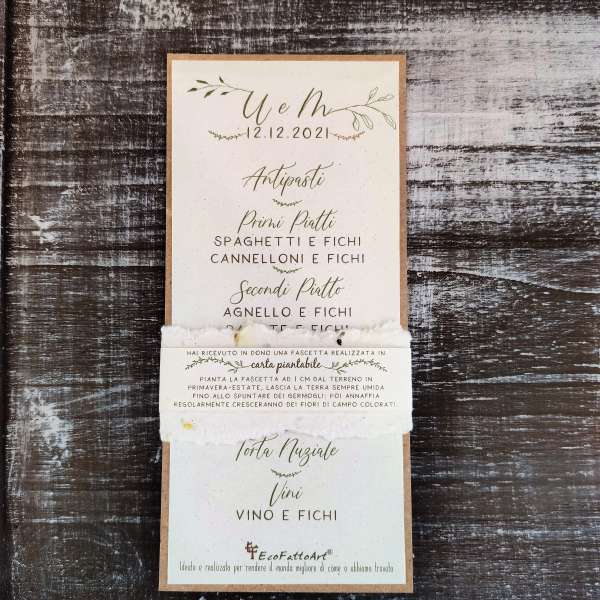 U e M
12.12.2021
Antipasti
Primi Piatti
SPAGHETTI E FICHI
CANNELLONI E FICHI
Secondi Piatto
AGNELLO E FICHI
HAI RICEVUTO IN DONO UNA FASCETTA REALIZZATA IN
carta piantabile
PIANTA LA FASCETTA AD 1 CM DAL TERRENO IN
PRIMAVERA-ESTATE, LASCIA LA TERRA SEMPRE UMIDA
FINO ALLO SPUNTARE DEI GERMOGLI; POI ANNAFFIA
REGOLARMENTE CRESCERANNO DEI FIORI DI CAMPO COLORATI.
Torta Nuziale
Vini
VINO E FICHI
EcoFattoArt®
Ideato e realizzato per rendere il mondo migliore di come lo abbiamo trovato